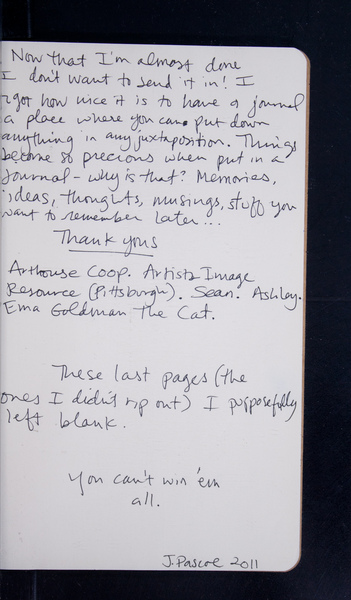 Now that I'm almost done
I don't want to send it in! I
rgot how nice it is to have a journal
a place where you can put down
anything in any juxtaposition. Things
become so precious when put in a
Journal - why is that? Memories,
ideas, thoughts, musings, stuff you
want to remember later...
Thank yous
Arthouse Coop. Artists Image
Resource (Pittsburgh). Sean. Ashley.
Ema Goldman the Cat.
These last pages (the
ones I didn't rip out) I purposefully
left blank.
You can't win 'em
all.
J. Pascoe 2011